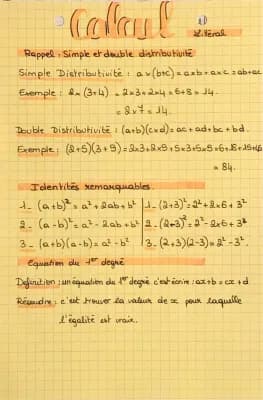 Calcul
littéral
Rappel : Simple et double distributivité
Simple Distributivité : a×(b+c) = a×b + a×c = ab+ac
Exemple : 2×(3+4) = 2×3+2×4 = 6+8 = 14.
= 2×7 = 14.
Double Distributivité : (a+b)(c×d) = ac + ad + bc + bd.
Exemple : (2+5)(3+9) = 2×3+2×9+5×3+5×9 = 6+18+15+45
= 84.
Identités remarquables.
1_ (a+b)² = a² + 2ab + b² | 1_ (2+3)² = 2² + 2×6 + 3²
2_ (a-b)² = a² - 2ab + b² | 2_ (2+3)² = 2² - 2×6 + 3²
3_ (a+b)(a-b) = a² - b² | 3_ (2+3)(2-3) = 2² - 3².
Equation du 1er degré
Définition : un équation du 1er degré c'est écrire : ax+b = cx+d
Résoudre : c'est trouver la valeur de x pour laquelle
l'égalité est vraie.